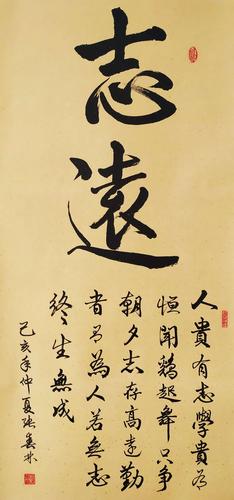 志遠
人貴有志學貴有
恒聞鷄起舞只爭
朝夕志存高遠勤
者可為人若無志
終生無成
己亥年仲夏